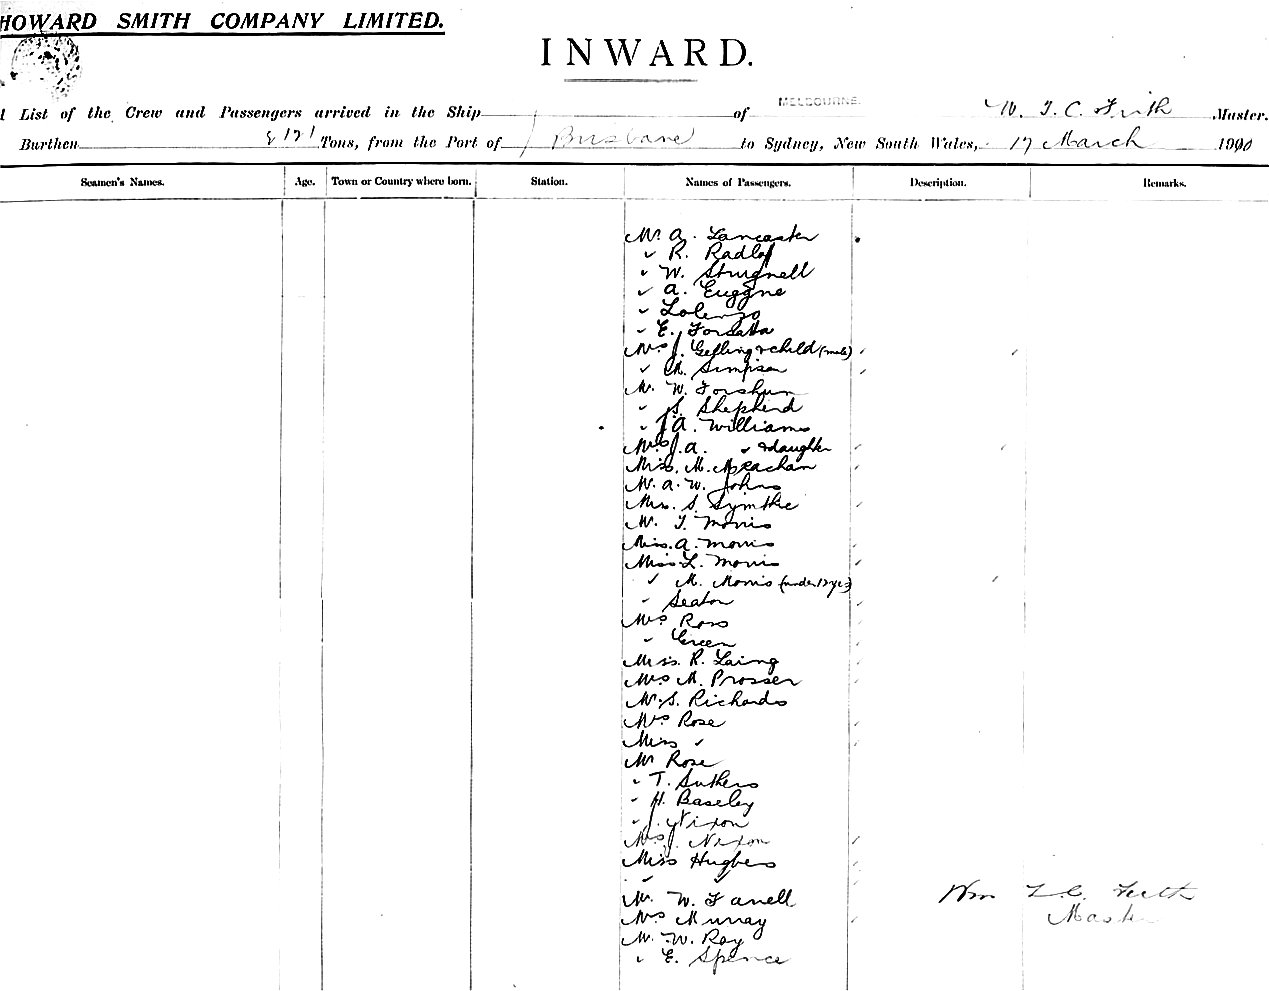 HOWARD SMITH COMPANY LIMITED.
INWARD.
List of the Crew and Passengers arrived in the Ship of MELBOURNE. W. T. C. Frith Master.
Burthen Tons, from the Port of Brisbane to Sydney, New South Wales, 17 March 1900
Seamen's Names. Age. Town or Country where born. Station. Names of Passengers. Description. Remarks.
Mr. A. Lancaster
" R. Radlof
" W. Sturgnell
" A.
" Lolenzo
" E.
Mrs J. & child (male)
" M. Simpson
Mr. W. Forshun
" S. Shepherd
" J A. Williams
Mrs J. A. " & daughter
Miss. M. Meachan
Mr. A. W. Johns
Mrs. S. Symthie
Mr. T. Morris
Miss. A. Morris
Miss L. Morris
" M. Morris (under 12 yrs)
" Seaton
Mrs Ross
" Green
Miss. R. Laing
Mrs M. Prosser
Mr. S. Richards
Mrs Rose
Miss "
Mr Rose
" T. Suthers
" H. Baseley
" J. Nixon
Mrs J. Nixon
Miss Hughes
" "
Mr. W. Farrell
Mrs Murray
Mr. W. Roy
" E. Spence
Wm T. C. Frith
Master